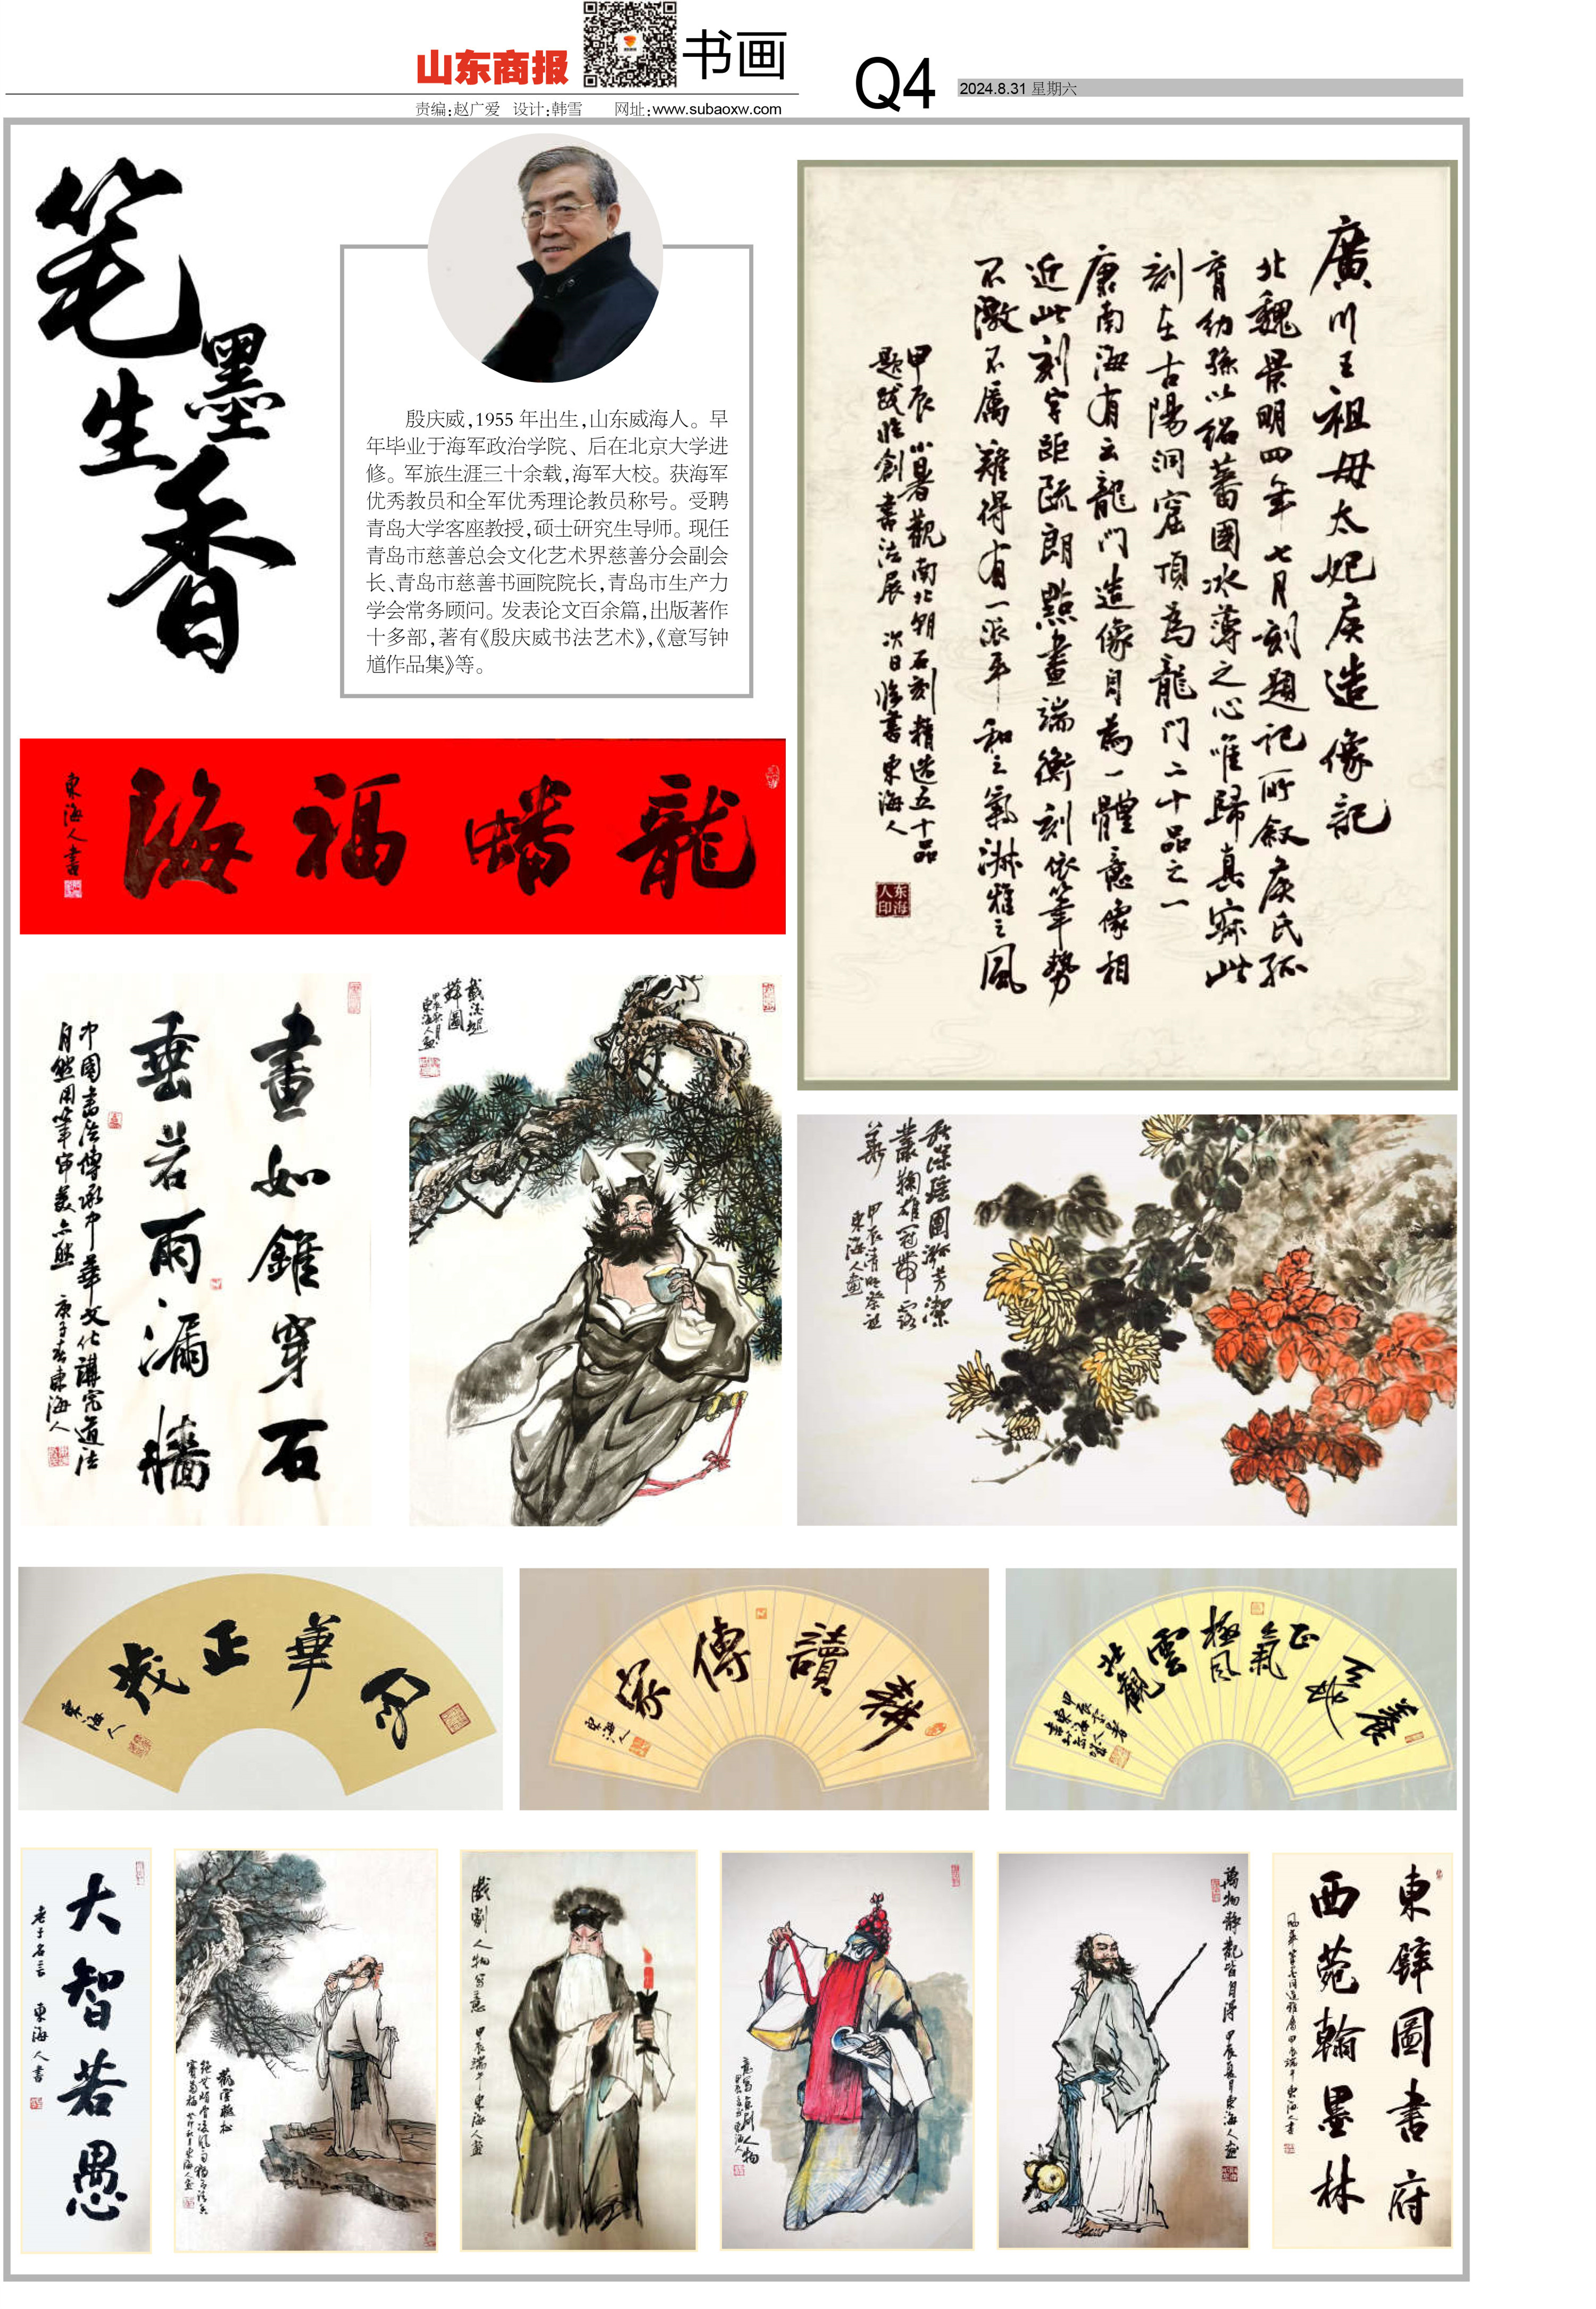 山东商报
书画
Q4
2024.8.31 星期六
责编:赵广爱 设计:韩雪 网址:www.subaoxw.com
笔墨生香
殷庆威,1955年出生,山东威海人。早
年毕业于海军政治学院、后在北京大学进
修。军旅生涯三十余载,海军大校。获海军
优秀教员和全军优秀理论教员称号。受聘
青岛大学客座教授,硕士研究生导师。现任
青岛市慈善总会文化艺术界慈善分会副会
长、青岛市慈善书画院院长,青岛市生产力
学会常务顾问。发表论文百余篇,出版著作
十多部,著有《殷庆威书法艺术》,《意写钟
馗作品集》等。
廣川王祖母太妃侯造像記
北魏景明四年七月刻題記所叙侯氏孤
育幼孫以紹蕃國冰薄之心唯歸真寂此
刻在古陽洞窟頂為龍门二十品之一
康南海有云龍门造像自為一體意像相
近此刻字距疏朗點畫端衡刻依筆勢
不激不厲難得有一派平和之氣淋雅之風
甲辰小暑觀南北朝石刻精选五十品
題跋临創書法展 次日临書 東海人
东海人印
龍蟠福海
東海人書
畫如錐穿石
垂若雨漏牆
中國書法傳承中華文化講究道法
自然用筆审美亦然 庚子春東海人
東海人畫
秋深瑤圃瀲芳潔
叢鞠雄冠帶露
華
東海人畫
風華正茂
東海人
耕讀傳家
東海人
養天地正氣
極風雲壯觀
大智若愚
老子名言 東海人書
觀雲聽松
戲劇人物写意 甲辰端午東海人畫
意写京剧人物
東海人
萬物靜觀皆自得 甲辰夏月東海人畫
東壁圖書府
西苑翰墨林